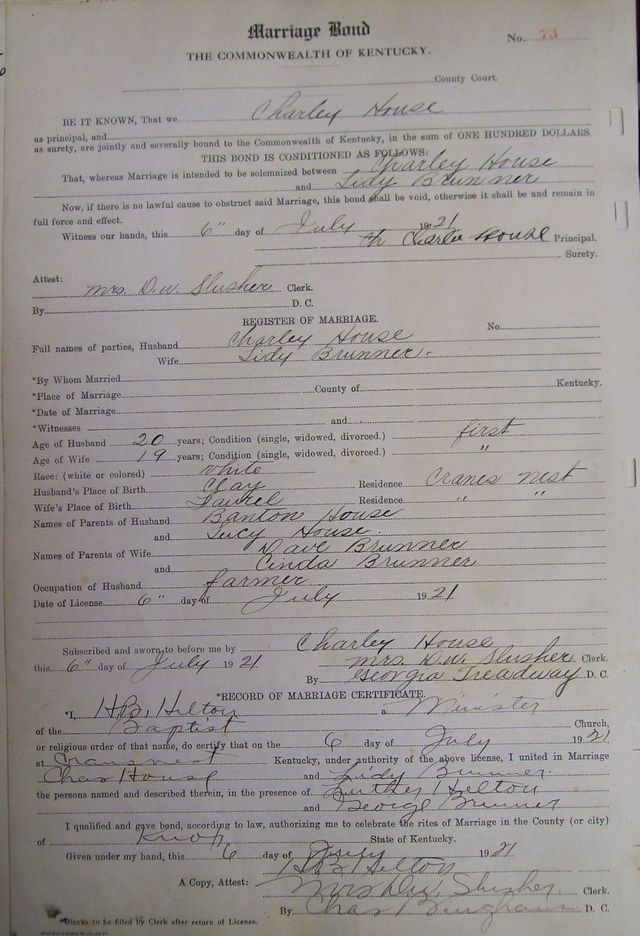 Marriage Bond
No. 73
THE COMMONWEALTH OF KENTUCKY.
County Court.
BE IT KNOWN, That we Charley House
as principal, and
as surety, are jointly and severally bound to the Commonwealth of Kentucky, in the sum of ONE HUNDRED DOLLARS
THIS BOND IS CONDITIONED AS FOLLOWS:
That, whereas Marriage is intended to be solemnized between Charley House
and Lidy Brunner
Now, if there is no lawful cause to obstruct said Marriage, this bond shall be void, otherwise it shall be and remain in
full force and effect.
Witness our hands, this 6" day of July 1921
Charlie House Principal.
Surety.
Attest:
Mrs. D.W. Slusher Clerk.
By D. C.
REGISTER OF MARRIAGE.
No.
Full names of parties, Husband Charley House
Wife Lidy Brunner.
*By Whom Married
*Place of Marriage County of Kentucky.
*Date of Marriage
*Witnesses and
Age of Husband 20 years; Condition (single, widowed, divorced.) first
Age of Wife 19 years; Condition (single, widowed, divorced.) "
Race: (white or colored) White
Husband's Place of Birth Clay Residence Cranes Nest
Wife's Place of Birth Laurel Residence " "
Names of Parents of Husband Banton House
and Lucy House
Names of Parents of Wife Dave Brunner
and Cinda Brunner
Occupation of Husband farmer
Date of License 6" day of July 1921
Subscribed and sworn to before me by Charley House
this 6" day of July 1921 Mrs. D.W. Slusher Clerk.
By Georgia Treadway D. C.
*RECORD OF MARRIAGE CERTIFICATE.
*I, H.B. Helton a Minister
of the Baptist Church,
or religious order of that name, do certify that on the 6 day of July 1921
at Cransnest Kentucky, under authority of the above license, I united in Marriage
Chas House and Lidy Brunner.
the persons named and described therein, in the presence of Luther Helton
and George Brunner
I qualified and gave bond, according to law, authorizing me to celebrate the rites of Marriage in the County (or city)
of Knox State of Kentucky.
Given under my hand, this 6 day of July 1921
H.B. Helton
A Copy, Attest: Mrs D.W. Slusher Clerk.
By Chas Bingham D. C.
*Blanks to be filled by Clerk after return of License.